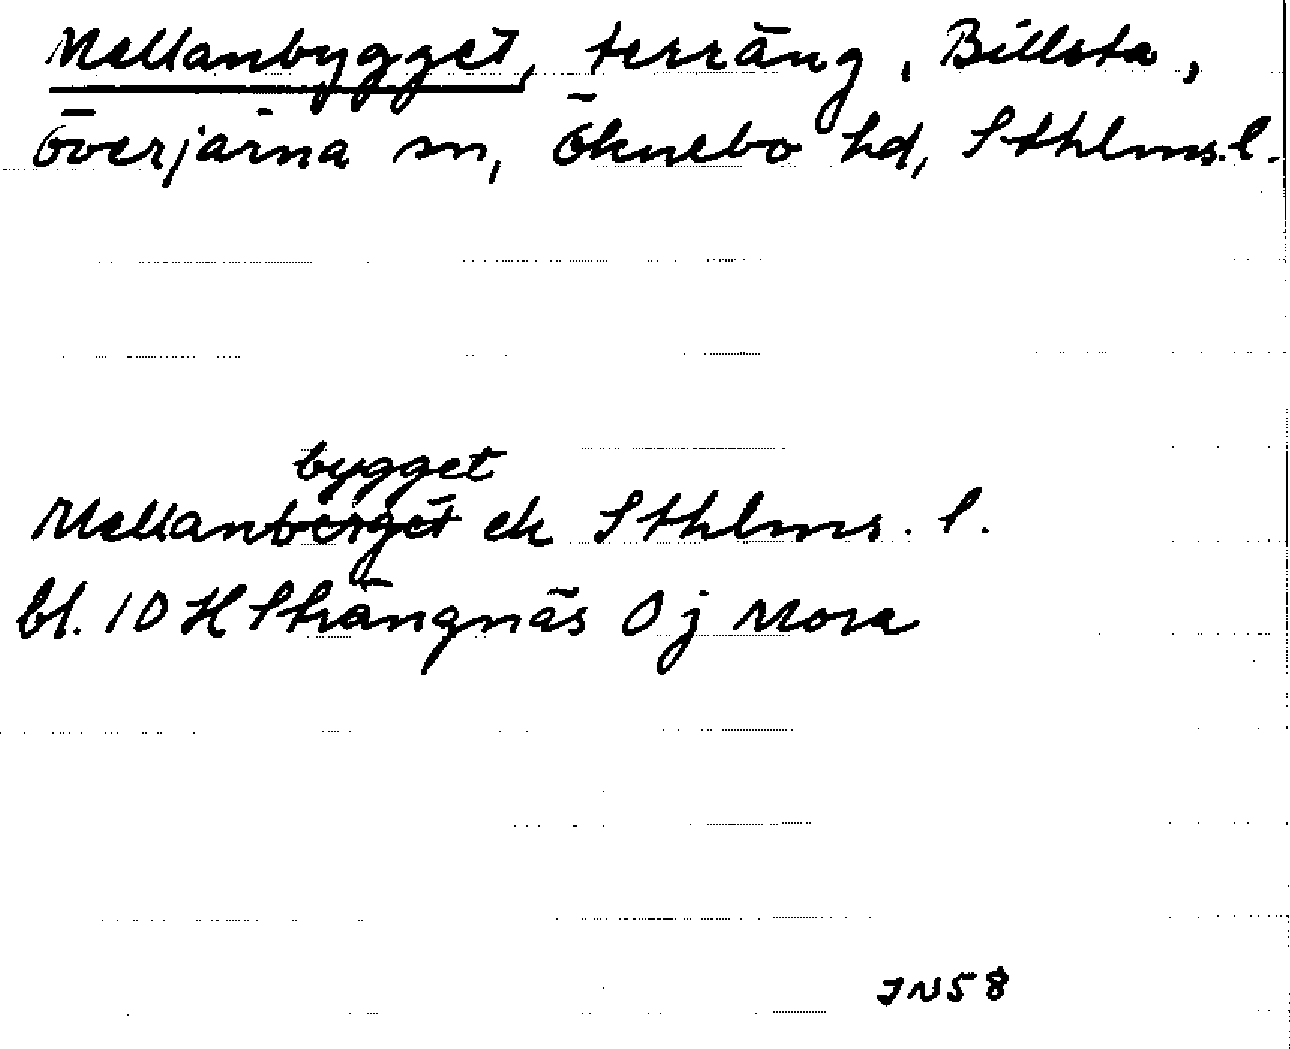 Mellanbygget, terräng, Billsta,
Överjärna sn, Öknebo hd, Sthlms. l.
bygget
Mellanberget ek Sthlms. l.
bl. 10 H Strängnäs 0 j Mora
JN58